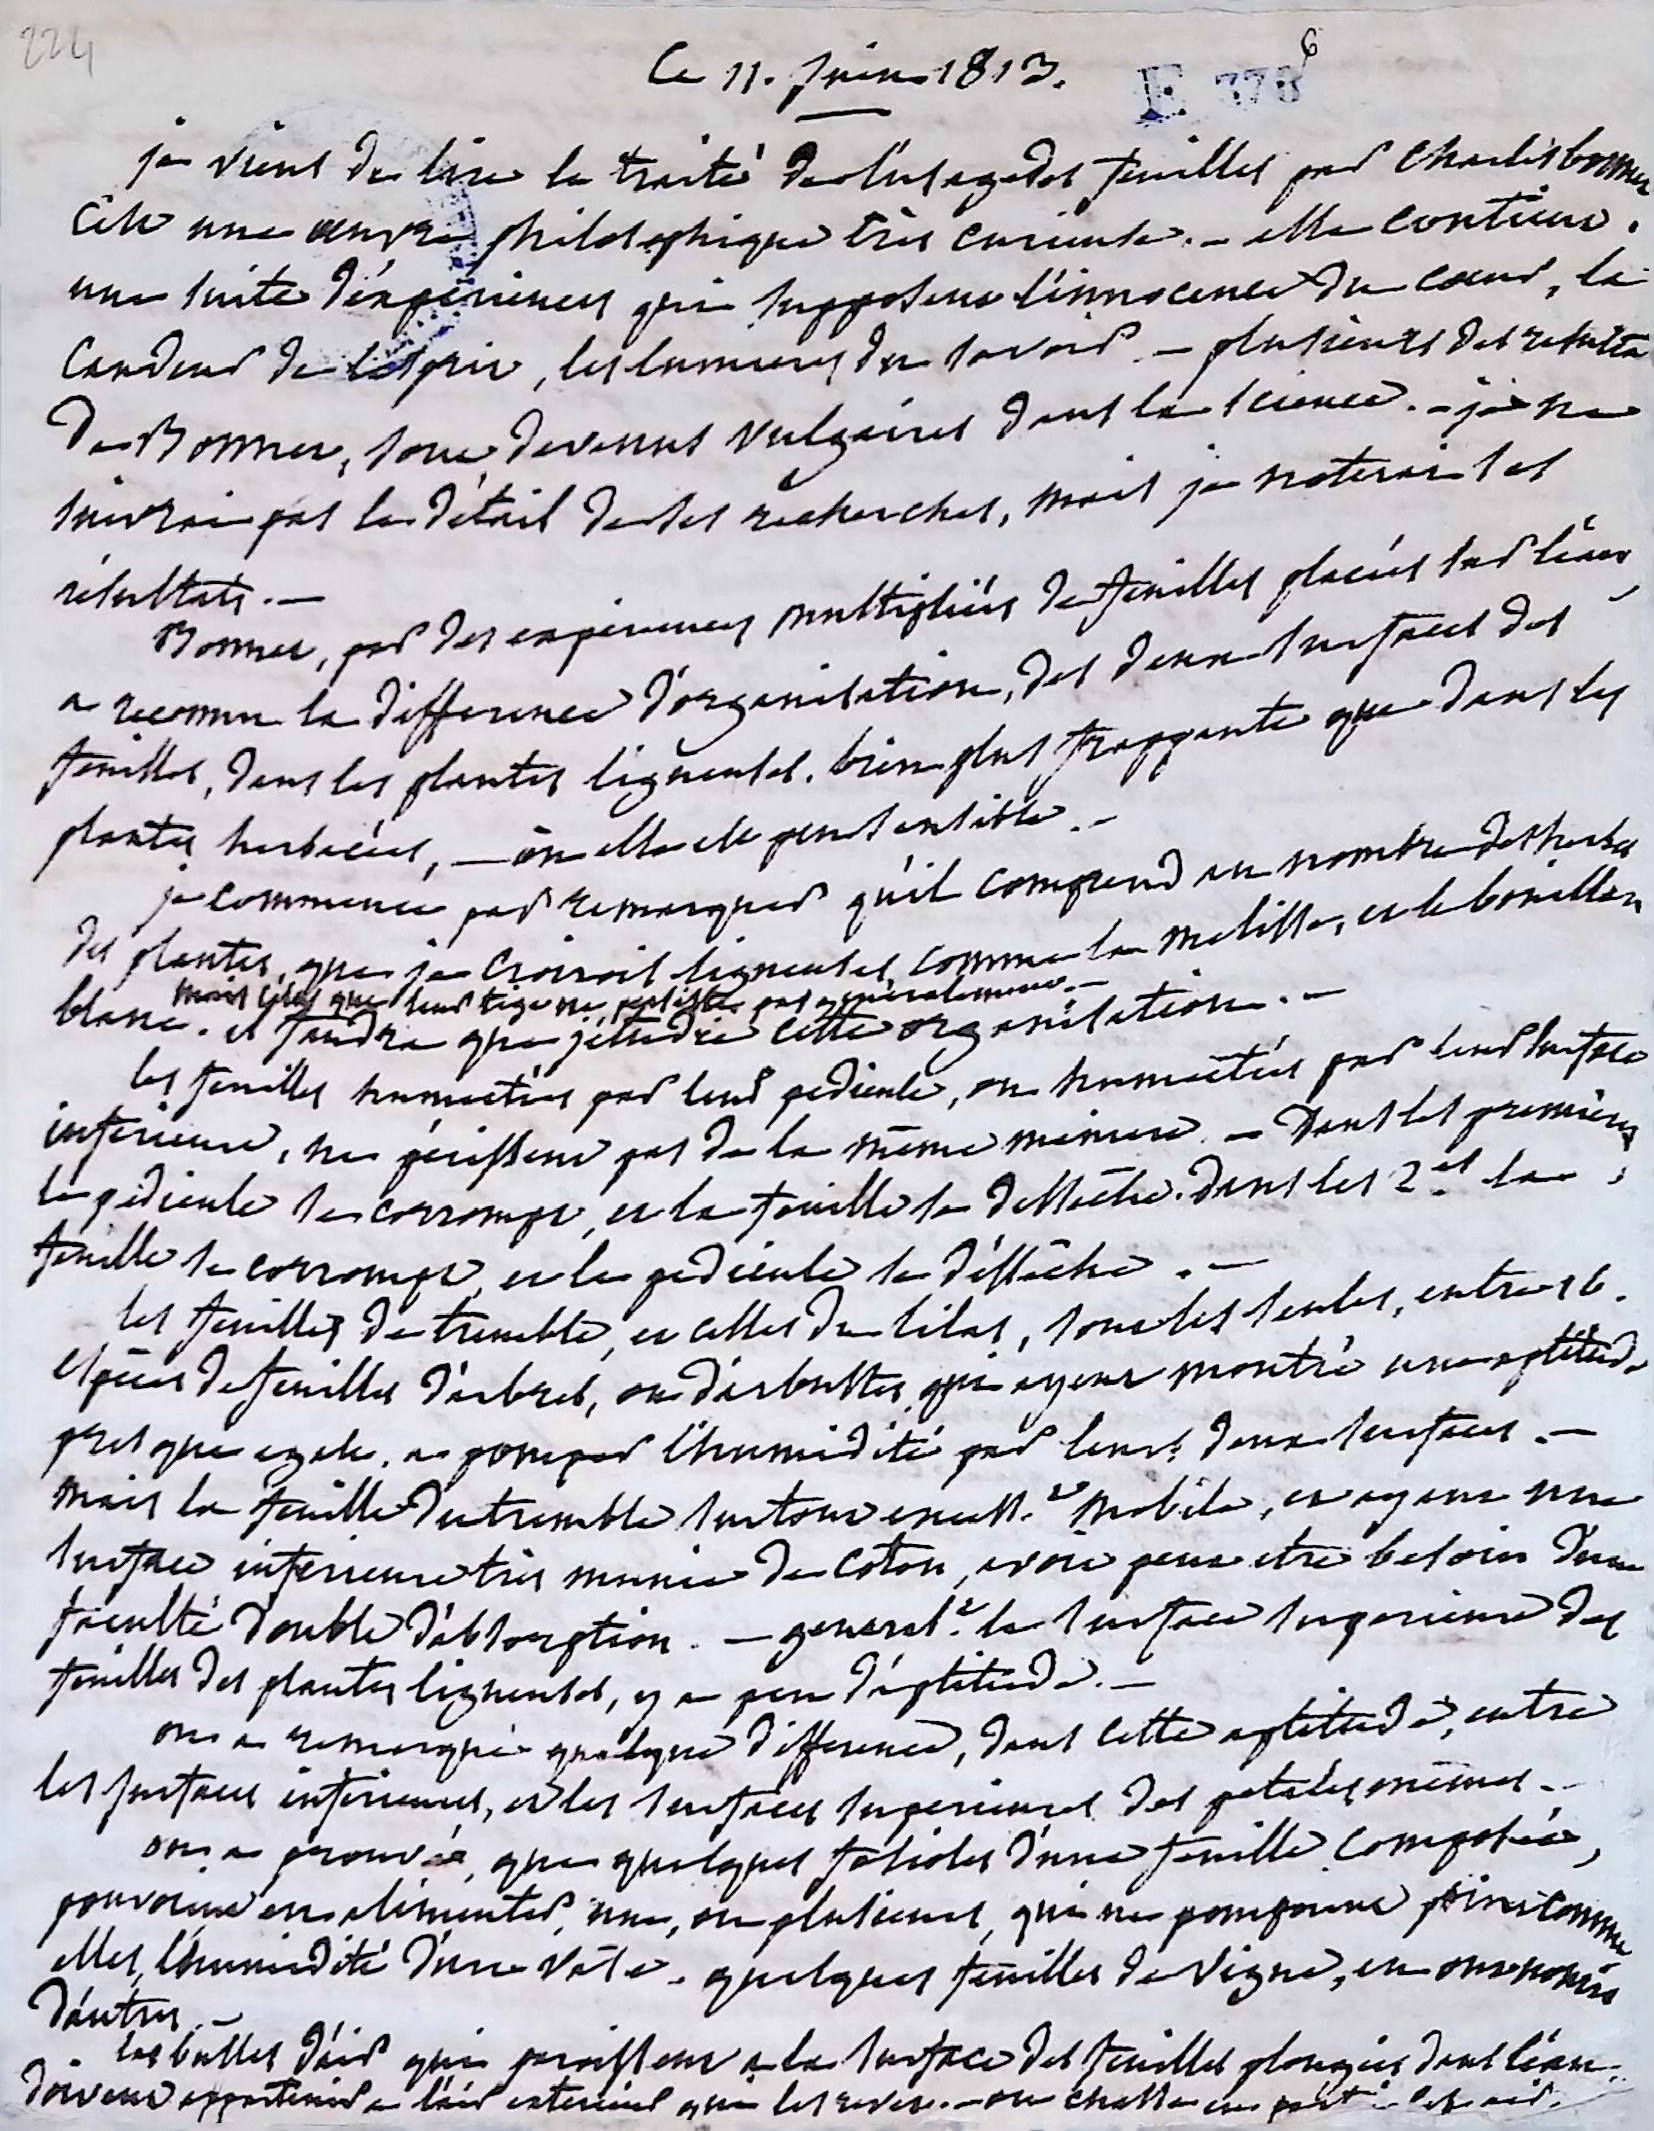 224
Ce 11. Juin 1813.
6
E 378
je viens de lire le traité de l'usage des feuilles par Charles bonnet
c'est une œuvre philosophique très curieuse. - elle contient
une suite d'expériences qui supposent l'innocence du cœur, la
candeur de l'esprit, les lumieres du savoir. - plusieurs des resulta
de Bonnet, sont devenus vulgaires dans la science. - je ne
suivrai pas le détail de ses recherches, mais je noterai ses
résultats. -
Bonnet, par des experiences multipliées de feuilles placées sur l'eau,
a reconnu la difference d'organisation, des deux surfaces des
feuilles, dans les plantes ligneuses. bien plus frappante que dans les
plantes herbacées, - ou elle est peu sensible. -
je commence par remarquer qu'il comprend au nombre des herbes
des plantes, que je croirois ligneuses, comme la melisse, et le bouillon
mais c'est que leur tige ne persiste pas généralement. -
blanc. il faudra que j'étudie cette organisation. -
les feuilles humectées par leur pedicule, ou humectées par leur surface
inferieure, ne périssent pas de la même maniere. - Dans les premieres
le pédicule se corrompt, et la feuille se dessèche. dans les 2.es la
feuille se corrompt, et le pedicule se déssèche. -
les feuilles de tremble, et celles du lilas, sont les seules, entre 16.
espèces de feuilles d'arbres, ou d'arbustes, qui ayent montré une aptitude
presque egale, a pomper l'humidité par leurs deux surfaces. -
mais la feuille du tremble surtout excess.t mobile, et ayant une
surface inferieure très munie de coton, avoit peut etre besoin d'une
faculté double d'absorption. - general.t la surface superieure des
feuilles des plantes ligneuses, y a peu d'aptitude. -
on a remarqué quelque difference, dans cette aptitude, entre
les surfaces inferieures, et les surfaces superieures des petales mêmes. -
on a prouvé, que quelques folioles d'une feuille composée,
pouvoient en alimenter, une, ou plusieurs, qui ne pompoient point comme
elles, l'humidité d'un vase. quelques feuilles de vigne, en ont nourri
d'autres. -
les bulles d'air qui paroissent a la surface des feuilles plongées dans l'eau.
doivent appartenir a l'air exterieur qui les revet. - on chasse en partie cet air.